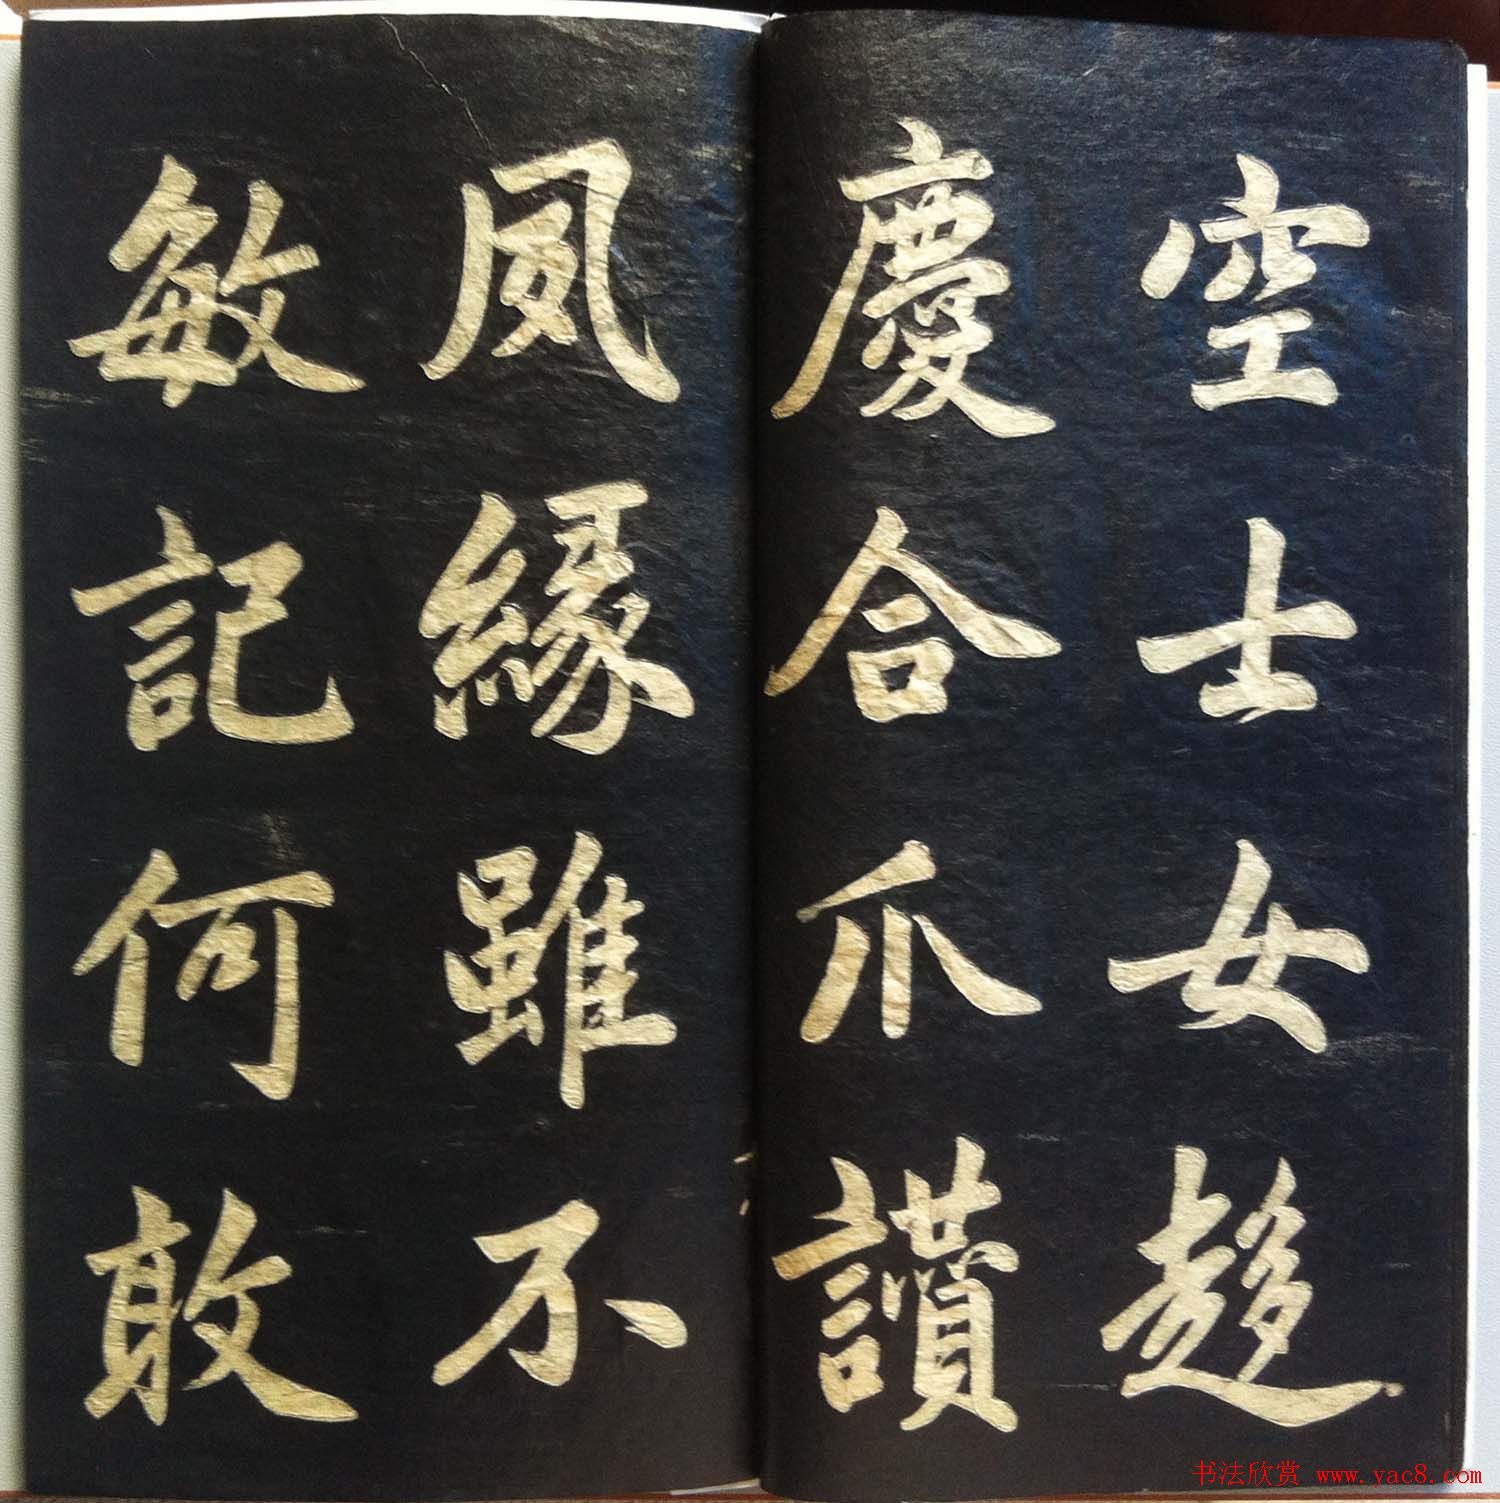 空士女趍
慶合爪讃
夙縁雖不
敏記何敢
书法欣赏 www.yac8.com